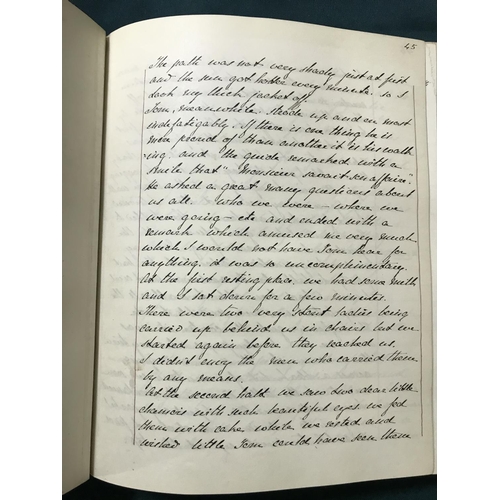 45
The path was not very shady just at first
and the sun got hotter every minute so I
took my thick jacket off.
Tom, meanwhile strode up and on most
indefatigably. If there is one thing he is
more proud of than another it is his walk
-ing and the guide remarked with a
smile that "Monsieur savait son affaire".
He asked a great many questions about
us all. Who we were - where we
were going - etc and ended with a
remark which amused me very much
which I would not have Tom hear for
anything. it was so uncomplimentary.
At the first resting place we had some milk
and I sat down for a few minutes.
There were two very stout ladies being
carried up behind us in chairs but we
started again before they reached us.
I didn't envy the men who carried them
by any means.
At the second halt we saw two dear little
chamois with such beautiful eyes we fed
them with cake while we rested and
wished little Tom could have seen them